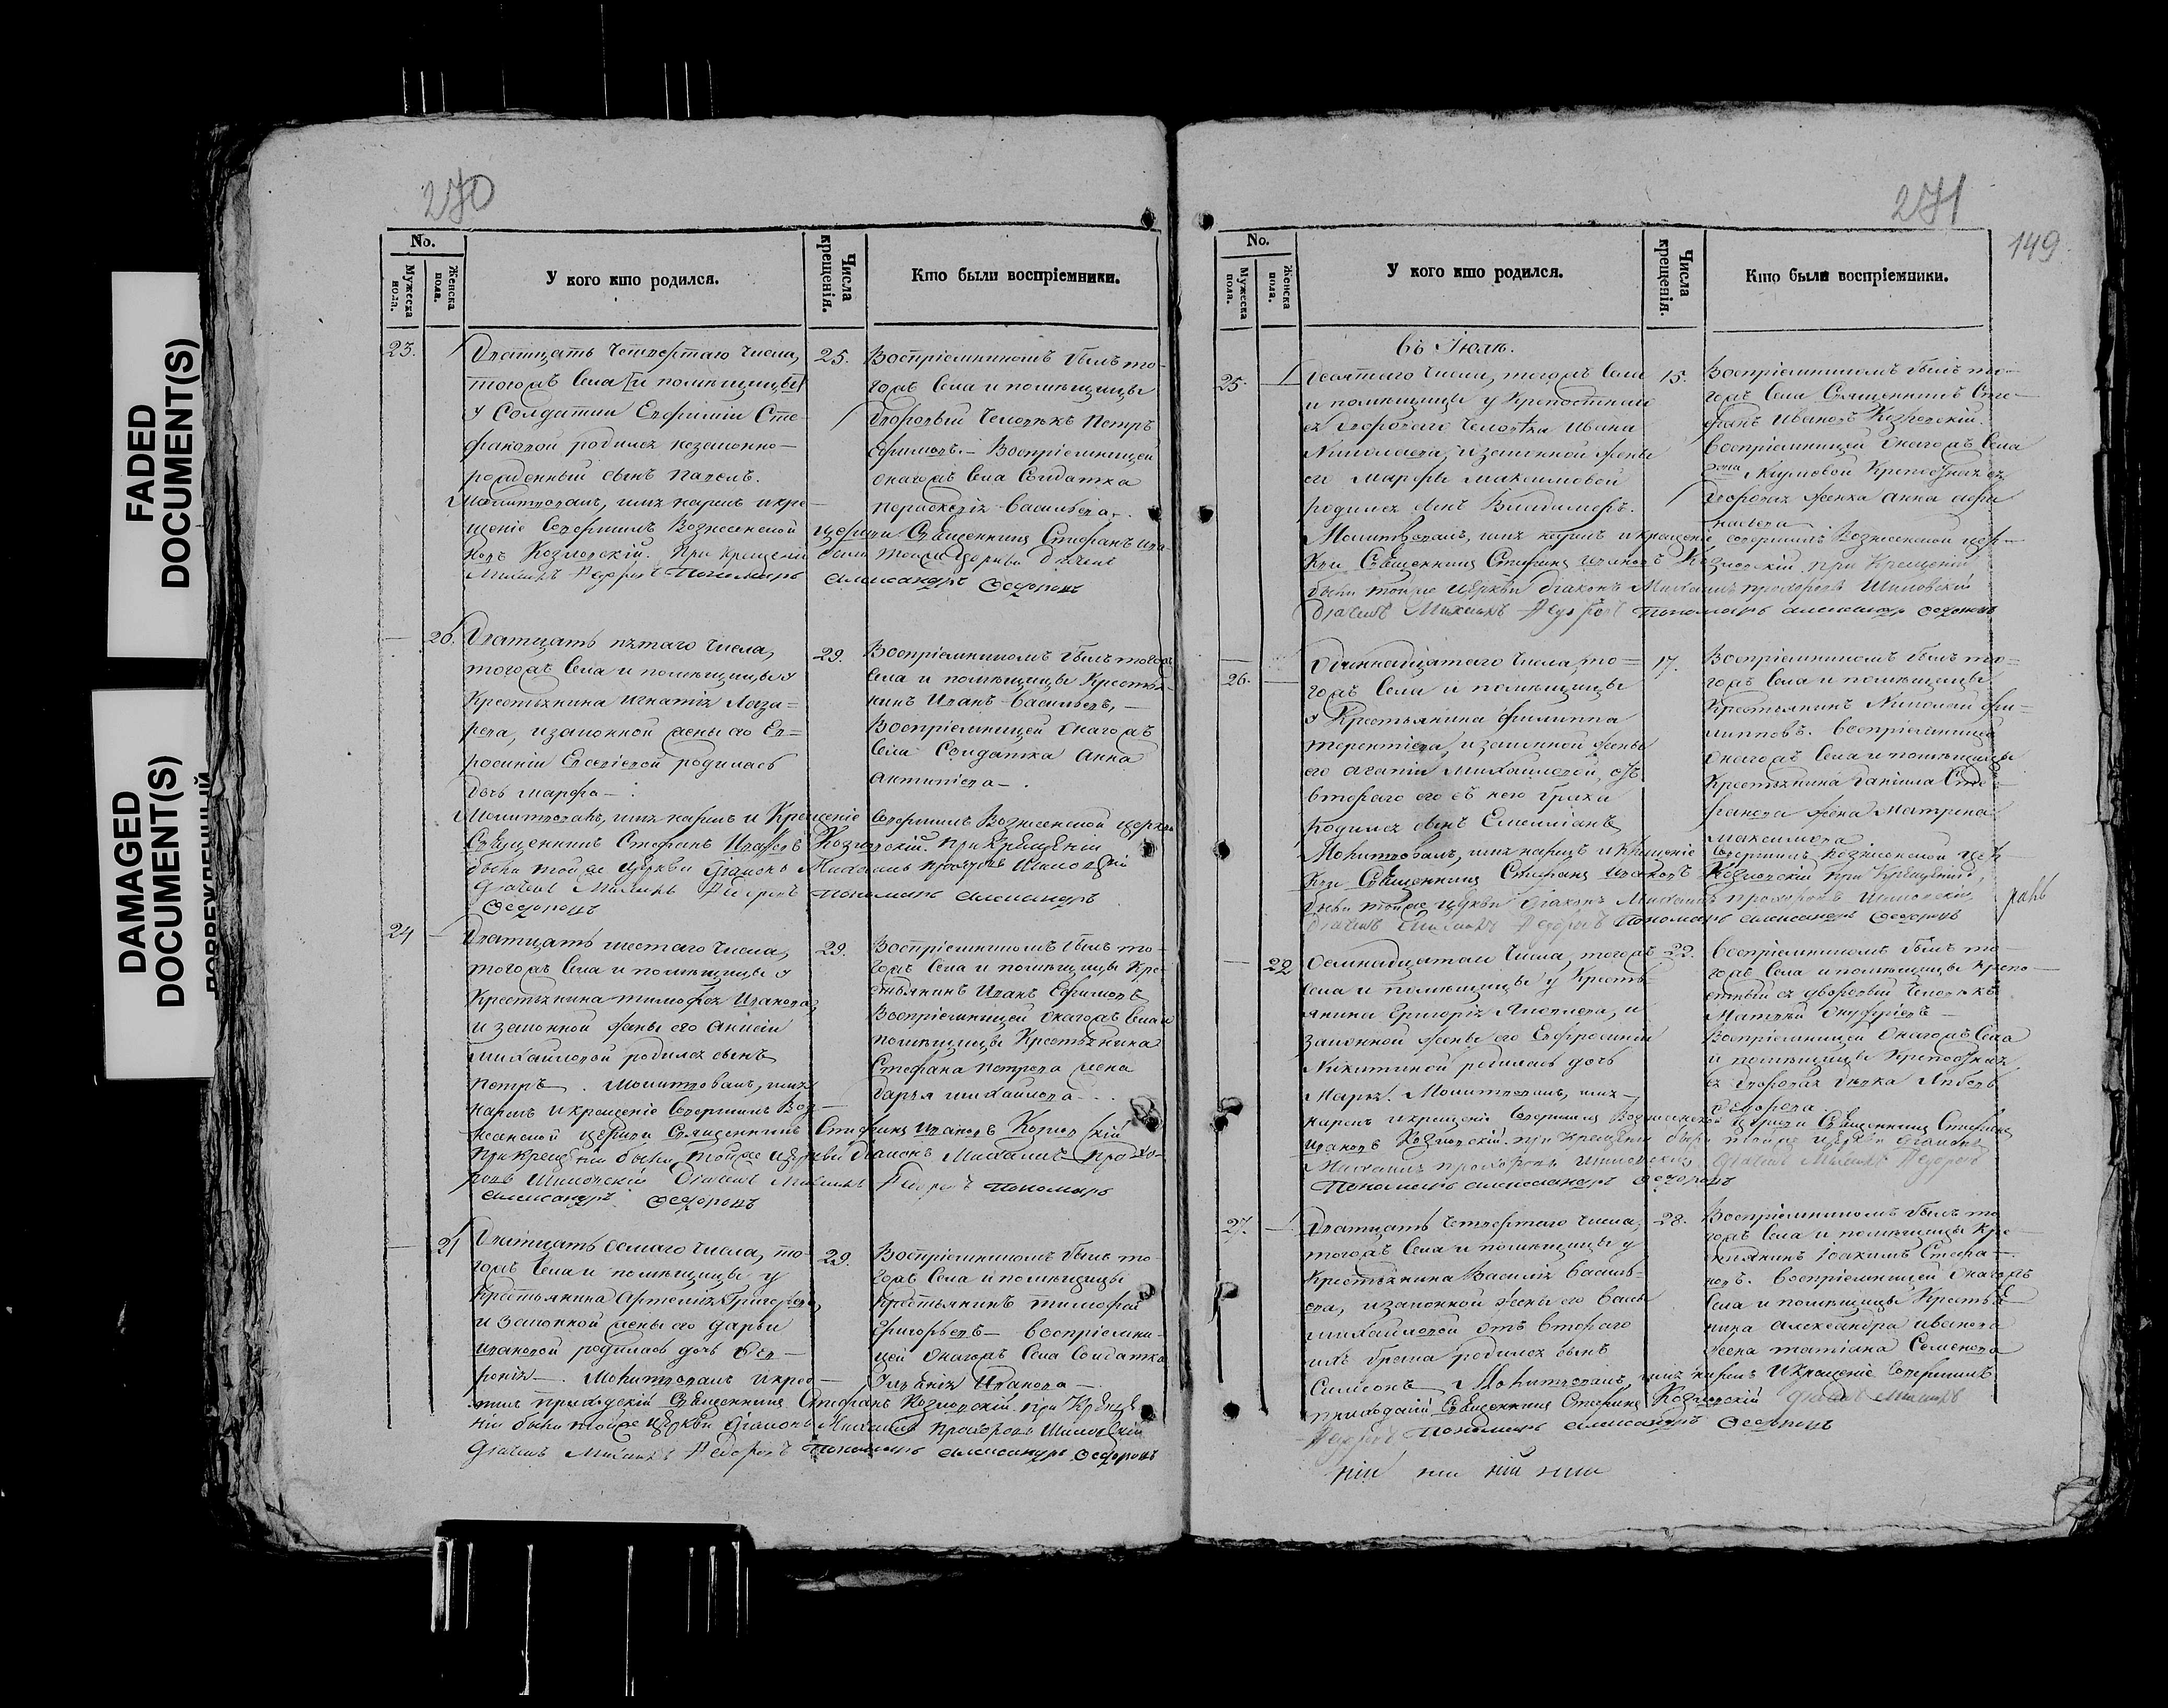 FADED
DOCUMENT(S)
DAMAGED
DOCUMENT(S)
ПОВРЕЖДЕННЫЙ
270
No.
Мужеска пола.
Женска пола.
У кого кто родился.
Числа крещенія.
Кто были воспріемники.
23.
Дватцать четвертаго числа,
тогожъ села [и помѣщицы]
у Солдатки Евфиміи Сте-
фановой родился незаконно-
рожденный сынъ Павелъ.
Молитвовалъ, имя нарекъ и кре-
щеніе совершилъ Вознесенской церкви Священникъ Стефанъ Ива-
новъ Козловскій. При крещеніи были тойже церкви дьячекъ
Михаилъ Федоровъ Пономарь Александръ Федоровъ
25.
Воспріемникомъ былъ то-
гожъ села и помѣщицы
дворовый человѣкъ Петръ
Ефимовъ. – Воспріемницей
онагожъ села Солдатка
Параскевія Васильева.
20.
Дватцать пятаго числа,
тогожъ села и помѣщицы у
Крестьянина Игнатія Лаза-
рева, и законной жены его Ев-
росиніи Евсевіевой родилась
дочь Марфа.
Молитвовалъ, имя нарекъ и Крещеніе совершилъ Вознесенской церкви
Священникъ Стефанъ Ивановъ Козловскій. При Крещеніи
были тойже церкви діаконъ Михаилъ Прохоровъ Шиловскій
Дьячекъ Михаилъ Федоровъ Пономарь Александръ
Федоровъ
29.
Воспріемникомъ былъ тогожъ
села и помѣщицы Крестья-
нинъ Иванъ Васильевъ, –
Воспріемницей онагожъ
села Солдатка Анна
Антипіева.
24
Дватцать шестаго числа,
тогожъ села и помѣщицы у
Крестьянина Тимофея Иванова,
и законной жены его Анисіи
Михайловой родился сынъ
Петръ. Молитвовалъ, имя
нарекъ и крещеніе совершилъ Воз-
несенской церкви Священникъ Стефанъ Ивановъ Козловскій
При Крещеніи были тойже церкви діаконъ Михаилъ Прохо-
ровъ Шиловскій Дьячекъ Михаилъ Федоровъ Пономарь
Александръ Федоровъ
29.
Воспріемникомъ былъ то-
гожъ села и помѣщицы Кре-
стьянинъ Иванъ Ефимовъ
Воспріемницей онагожъ села и
помѣщицы Крестьянина
Стефана Петрова жена
Дарья Михайлова
21
Дватцать осмаго числа, то-
гожъ села и помѣщицы у
Крестьянина Артемія Григорьева,
и законной жены его Дарьи
Ивановой родилась дочь Фев-
ронія. Молитвовалъ и крес-
тилъ приходскій Священникъ Стефанъ Козловскій. При Креще-
ніи были тойже церкви діаконъ Михаилъ Прохоровъ Шиловскій
Дьячекъ Михаилъ Федоровъ Пономарь Александръ Федоровъ
29.
Воспріемникомъ былъ то
гожъ села и помѣщицы
Крестьянинъ Тимофей
Григорьевъ – воспріемни-
цей онагожъ села Солдатка
Иванова
271
149
No.
Мужеска пола.
Женска пола.
У кого кто родился.
Числа крещенія.
Кто были воспріемники.
Въ Іюлѣ.
25.
Десятаго числа, тогожъ села
и помѣщицы у Крепостнаго
ея дворовато человѣка Ивана
Николаева, и законной жены
его Марфы Максимовой
родился сынъ Владимеръ.
Молитвовалъ, имя нарекъ и крещеніе совершилъ Вознесенской цер-
кви Священникъ Стефанъ Ивановъ Козловскій при Крещеніи
были тойже церкви діаконъ Михаилъ Прохоровъ Шиловскій
Дьячекъ Михаилъ Федоровъ Пономарь Александръ Федоровъ
15.
Воспріемникомъ былъ то-
гожъ села Священникъ Сте-
фанъ Ивановъ Козловскій.
Воспріемницей онагожъ села
крепостная ея
дворовая женка Анна Афа
насьева
26.
Одиннадцатаго числа, то-
гожъ села и помѣщицы
у Крестьянина Филиппа
Терентіева, и законной жены
его Агапіи Михайловой, отъ
втораго его съ нею брака
родился сынъ Емеліанъ
Молитвовалъ, имя нарекъ и крещеніе совершилъ Вознесенской цер-
кви Священникъ Стефанъ Ивановъ Козловскій при Крещеніи,
были тойже церкви діаконъ Михаилъ Прохоровъ Шиловскій,
Дьячекъ Михаилъ Федоровъ Пономарь Александръ Федоровъ
17.
Воспріемникомъ былъ то-
гожъ села и помѣщицы
Крестьянинъ Николай Фи-
липповъ. Воспріемницей
онагожъ села и помѣщицы
Крестьянина Даніила Сте-
фанова жена Матрена
Максимова
22
Осмнадцатаго числа, тогожъ
села и помѣщицы у Кресть-
янина Григорія Яковлева, и
законной жены его Евфросиніи
Никитиной родилась дочь
Марья. Молитвовалъ, имя
нарекъ и крещеніе совершилъ Вознесенской церкви Священникъ Стефанъ
Ивановъ Козловскій. При крещеніи были тойже церкви діаконъ
Михаилъ Прохоровъ Шиловскій. Дьячекъ Михаилъ Федоровъ
Пономарь Александръ Федоровъ
22.
Воспріемникомъ былъ то-
гожъ села и помѣщицы крепо-
стный ея дворовый человѣкъ
Матвей Онуфріевъ –
Воспріемницей онагожъ села
и помѣщицы крепостная
ея дворовая девка Любовь
Федорова
27.
Дватцать четвертаго числа,
тогожъ села и помѣщицы у
Крестьянина Василія Василь-
ева, и законной жены его
Михайловой отъ втораго
ихъ брака родился сынъ
Симеонъ. Молитвовалъ, имя нарекъ и крещеніе совершилъ
приходскій Священникъ Стефанъ Козловскій Дьячекъ Михаилъ
Федоровъ Пономарь Александръ Федоровъ
28.
Воспріемникомъ былъ то
гожъ села и помѣщицы Кре-
стьянинъ Іоакимъ Стефа-
новъ. Воспріемницей онагожъ
села и помѣщицы Крестья-
нина Александра Иванова
жена Татіана Семенова